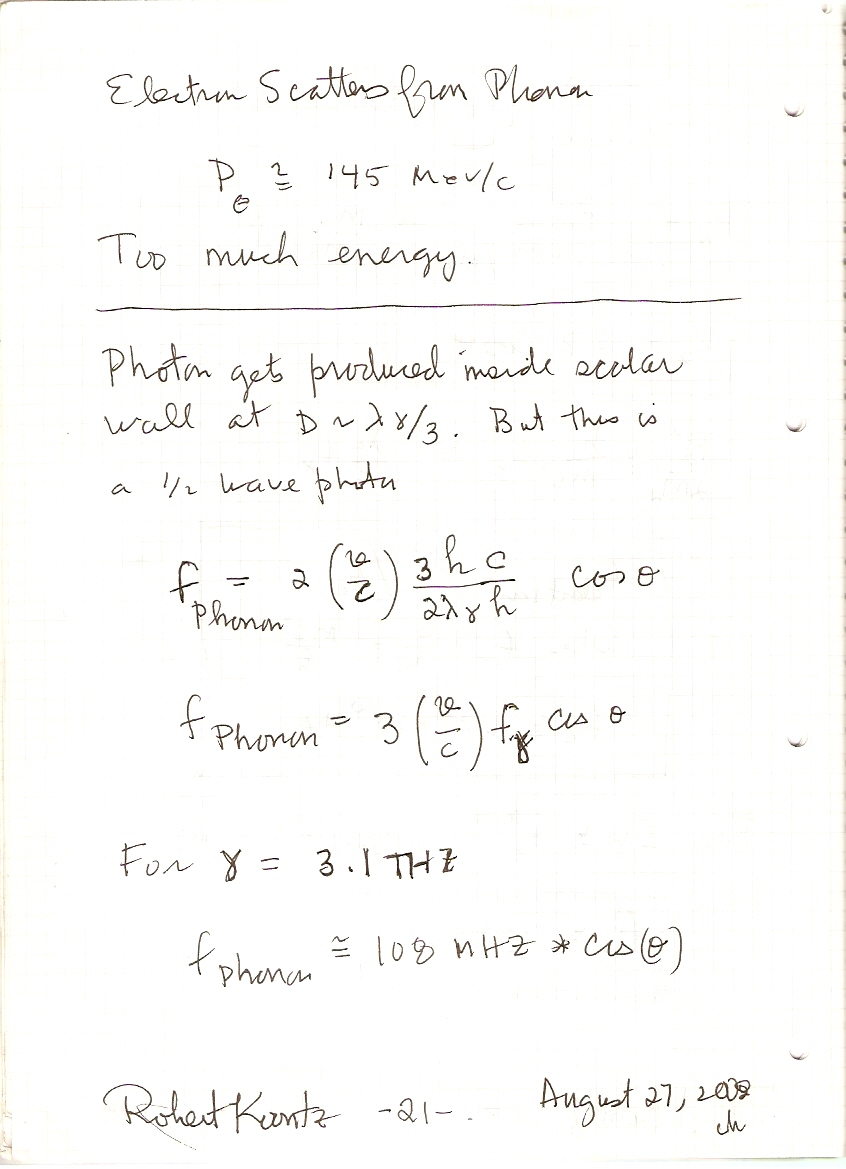 Electron Scatters from Phonon
Pe ≅ 145 MeV/c
Too much energy.
Photon gets produced inside scalar
wall at D ~ λγ/3. But this is
a 1/2 wave photon
f Phonon = 2 (v/c) 3hc/2λγh cos θ
f Phonon = 3 (v/c) fγ cos θ
For γ = 3.1 THZ
f phonon ≅ 108 MHZ * cos(θ)
Robert -21-. August 27, 2008